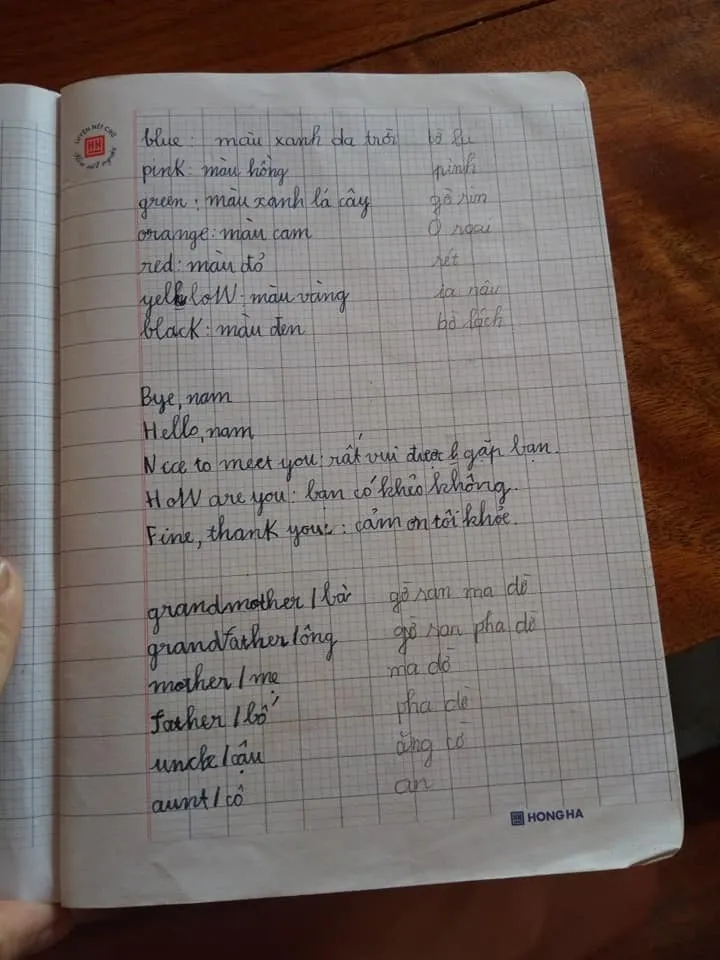 LUYỆN NÉT CHỮ
blue: màu xanh da trời bồ lu
pink: màu hồng pinh
green: màu xanh lá cây gờ rin
orange: màu cam Ô roai
red: màu đỏ rét
yellow: màu vàng ia nâu
black: màu đen bờ lách
Bye, nam
Hello, nam
Nice to meet you: rất vui được gặp bạn.
How are you: bạn có khỏe không.
Fine, thank you: cảm ơn tôi khỏe.
grandmother / bà gờ ran ma dờ
grandfather / ông gờ ran pha dờ
mother / mẹ ma dờ
father / bố pha dờ
uncle / cậu ăng cồ
aunt / cô an
HONG HA